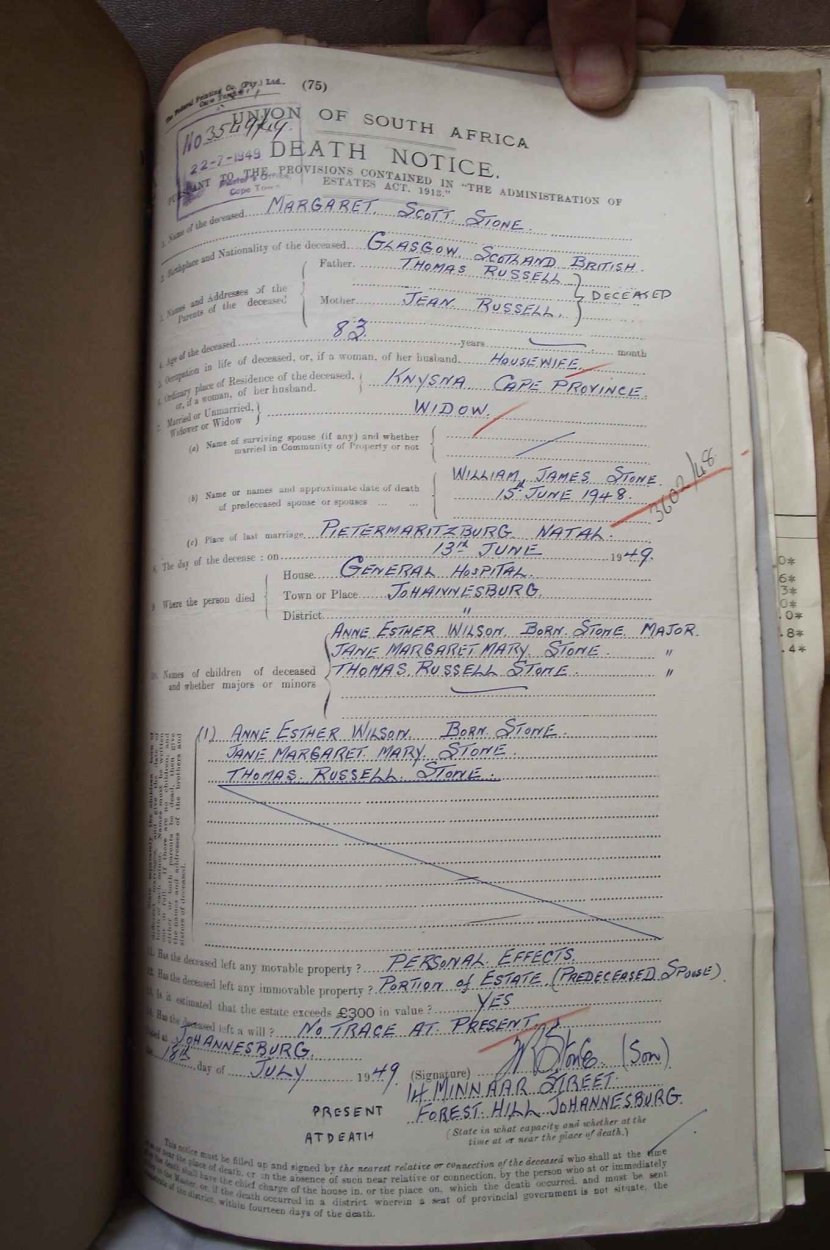 The Federal Printing Co. (Pty.) Ltd.,
Cape Town
(75)
No 3549/49
22-7-1949
Master's Office,
Cape Town
UNION OF SOUTH AFRICA
DEATH NOTICE.
PURSUANT TO THE PROVISIONS CONTAINED IN "THE ADMINISTRATION OF
ESTATES ACT, 1913."
1. Name of the deceased MARGARET. SCOTT. STONE.
2. Birthplace and Nationality of the deceased GLASGOW. SCOTLAND. BRITISH.
3. Names and Addresses of the Parents of the deceased
Father THOMAS RUSSELL
Mother JEAN RUSSELL.
DECEASED
4. Age of the deceased 83. years month
5. Occupation in life of deceased, or, if a woman, of her husband. HOUSEWIFE.
6. Ordinary place of Residence of the deceased,
or, if a woman, of her husband. KNYSNA CAPE PROVINCE.
7. Married or Unmarried,
Widower or Widow WIDOW.
(a) Name of surviving spouse (if any) and whether
married in Community of Property or not
(b) Name or names and approximate date of death
of predeceased spouse or spouses
WILLIAM JAMES STONE.
15th JUNE 1948.
3602/48
(c) Place of last marriage PIETERMARITZBURG NATAL.
8. The day of the decease: on 13th JUNE 1949.
9. Where the person died
House GENERAL HOSPITAL.
Town or Place JOHANNESBURG.
District "
10. Names of children of deceased
and whether majors or minors
ANNE ESTHER WILSON. BORN. STONE. MAJOR.
JANE MARGARET MARY. STONE. "
THOMAS RUSSELL STONE. "
(1) ANNE ESTHER WILSON. BORN. STONE.
JANE MARGARET MARY. STONE.
THOMAS. RUSSELL. STONE.
11. Has the deceased left any movable property? PERSONAL EFFECTS.
12. Has the deceased left any immovable property? PORTION of ESTATE. (PREDECEASED SPOUSE).
13. Is it estimated that the estate exceeds £300 in value? YES
14. Has the deceased left a will? NO TRACE AT PRESENT
Dated at JOHANNESBURG.
the 18th day of JULY 1949
(Signature) Stone (SON)
14 MINNAAR STREET.
FOREST HILL JOHANNESBURG.
PRESENT
AT DEATH
(State in what capacity and whether at the
time at or near the place of death.)
This notice must be filled up and signed by the nearest relative or connection of the deceased who shall at the time
or near the place of death, or in the absence of such near relative or connection, by the person who at or immediately
the death shall have the chief charge of the house in, or the place on, which the death occurred, and must be sent
to the Master, or, if the death occurred in a district wherein a seat of provincial government is not situate, the
of the district, within fourteen days of the death.
0*
6*
3*
0*
.0*
.8*
.4*